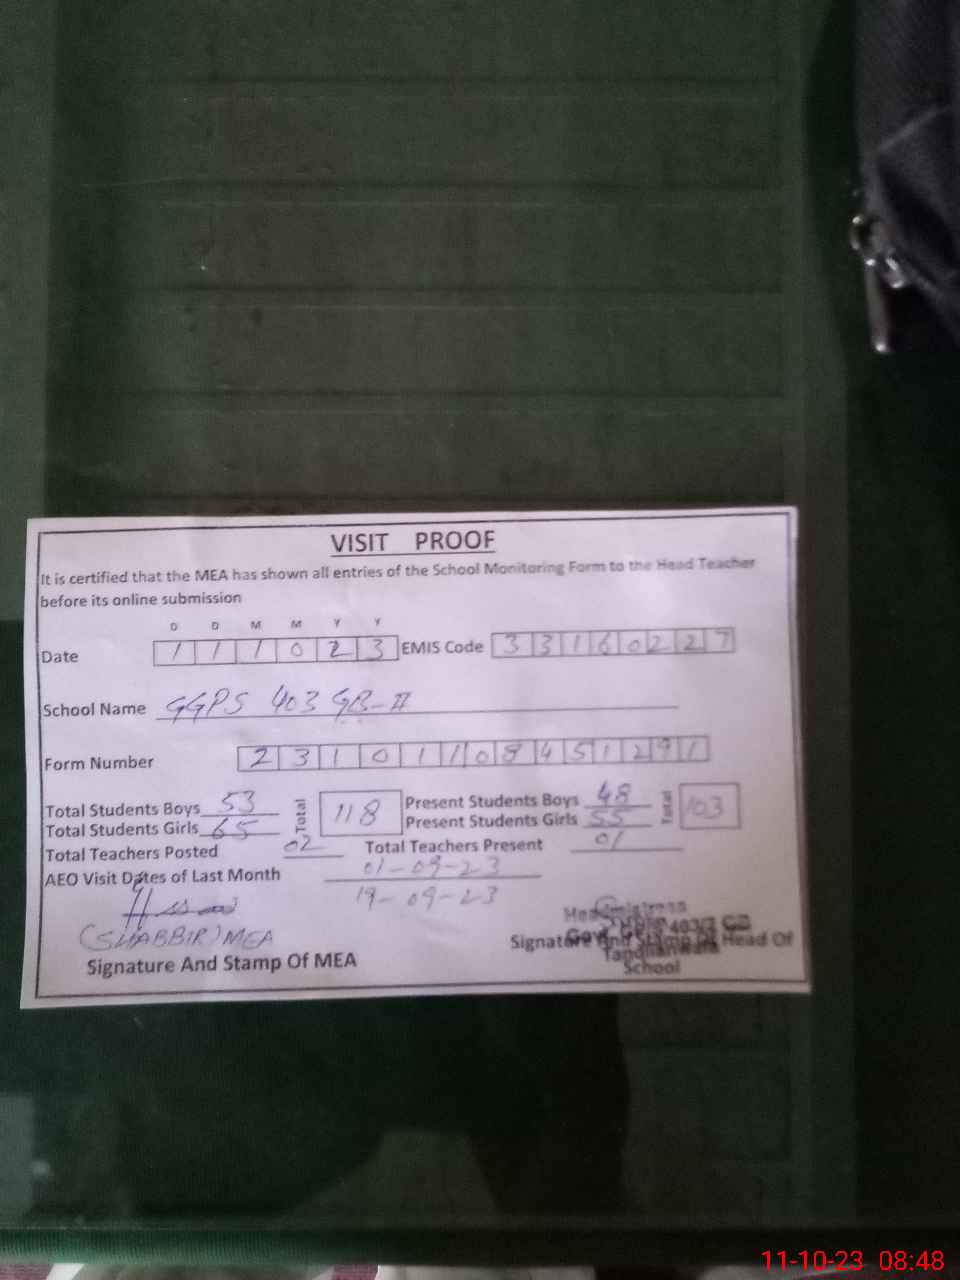 VISIT PROOF
It is certified that the MEA has shown all entries of the School Monitoring Form to the Head Teacher
before its online submission
D D M M Y Y
Date 1 1 1 0 2 3 EMIS Code 3 3 1 6 0 2 2 7
School Name GGPS 403 GB-II
Form Number 2 3 1 0 1 1 0 8 4 5 1 2 9 1
Total Students Boys 53 Total 118 Present Students Boys 48 Total 103
Total Students Girls 65 Present Students Girls 55
Total Teachers Posted 02 Total Teachers Present 01
AEO Visit Dates of Last Month 01-09-23
19-09-23
(SHABBIR) MEA
Headmistress
Signature And Stamp Of Head Of
Tandlianwala
School
Signature And Stamp Of MEA
11-10-23 08:48